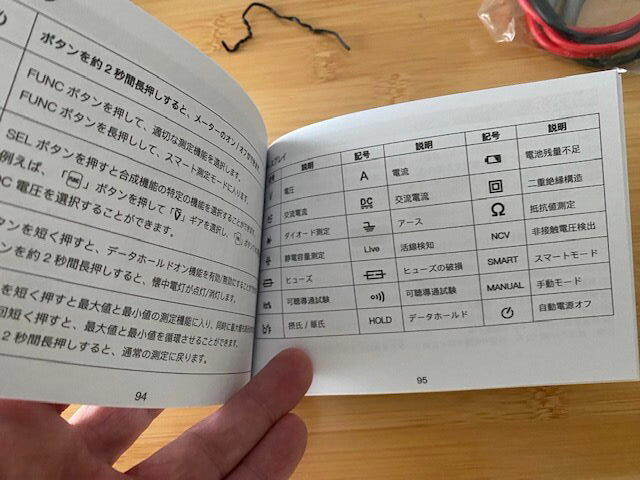 ボタンを約2秒間長押しすると、メーターのオン/オフができます。
FUNC ボタンを押して、適切な測定機能を選択します。
FUNC ボタンを長押しして、スマート測定モードに入ります。
SEL ボタンを押すと合成機能の特定の機能を選択することができます。
例えば、「 」ボタンを押して「V」ギアを選択し、
DC 電圧を選択することができます。
タンを短く押すと、データホールドオン機能を有効/無効にすることができ
ンを約2秒間長押しすると、懐中電灯が点灯/消灯します。
を短く押すと最大値と最小値の測定機能に入り、同時に最大値
回短く押すと、最大値と最小値を循環させることができます。
2秒間長押しすると、通常の測定に戻ります。
94
スプレイ
説明 記号 説明 記号 説明
電圧 A 電流 電池残量不足
交流電流 DC 交流電流 二重絶縁構造
ダイオード測定 アース Ω 抵抗値測定
静電容量測定 Live 活線検知 NCV 非接触電圧検出
ヒューズ ヒューズの破損 SMART スマートモード
可聴導通試験 可聴導通試験 MANUAL 手動モード
摂氏/華氏 HOLD データホールド 自動電源オフ
95